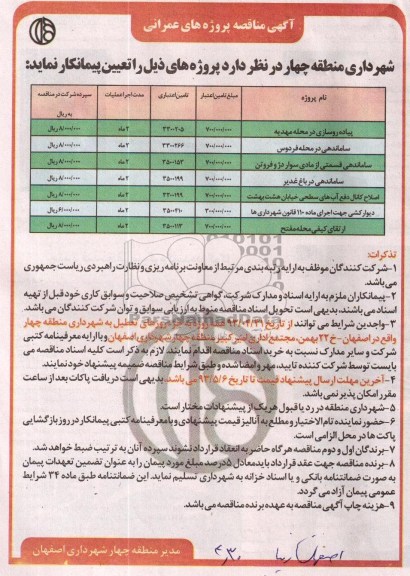 آگهی مناقصه پروژه های عمرانی
شهرداری منطقه چهار در نظر دارد پروژه های ذیل را تعیین پیمانکار نماید:
نام پروژه مبلغ تامین اعتبار تامین اعتباری مدت اجرا عملیات سپرده شرکت در مناقصه به ریال
پیاده روسازی در محله مهدیه ۷۰۰/۰۰۰/۰۰۰ ۳۳۰۰۲۰۵ ۲ ماه ۸/۰۰۰/۰۰۰ ریال
ساماندهی در محله فردوس ۷۰۰/۰۰۰/۰۰۰ ۳۳۰۰۲۶۶ ۲ ماه ۸/۰۰۰/۰۰۰ ریال
ساماندهی قسمتی از مادی سوار دژ و فروتن ۷۰۰/۰۰۰/۰۰۰ ۳۵۰۰۱۵۳ ۲ ماه ۸/۰۰۰/۰۰۰ ریال
ساماندهی در باغ غدیر ۷۰۰/۰۰۰/۰۰۰ ۳۵۰۰۱۹۹ ۲ ماه ۸/۰۰۰/۰۰۰ ریال
اصلاح کانال دفع آب های سطحی خیابان هشت بهشت ۷۰۰/۰۰۰/۰۰۰ ۳۳۰۰۱۹۹ ۲ ماه ۸/۰۰۰/۰۰۰ ریال
دیوار کشی جهت اجرای ماده ۱۱۰ قانون شهرداری ها ۳۰۰/۰۰۰/۰۰۰ ۳۵۰۰۲۱۰ ۲ ماه ۶/۰۰۰/۰۰۰ ریال
ارتقای کیفی محله مفتح ۷۰۰/۰۰۰/۰۰۰ ۳۵۰۰۱۱۳ ۲ ماه ۸/۰۰۰/۰۰۰ ریال
تذکرات:
۱-شرکت کنندگان موظف به ارایه رتبه بندی مرتبط از معاونت برنامه ریزی و نظارت راهبردی ریاست جمهوری
می باشد.
۲-پیمانکاران ملزم به ارایه اسناد و مدارک شرکت، گواهی تشخیص صلاحیت و سوابق کاری خود قبل از تهیه
اسناد می باشند، بدیهی است تحویل اسناد مناقصه منوط به ارزیابی سوابق و توان شرکت کنندگان می باشد.
۳-واجدین شرایط می توانند از تاریخ روزهای تعطیل به شهرداری منطقه چهار
واقع در اصفهان - خ ۲۲ بهمن، مجتمع اداری امیرکبیر منطقه چهار شهرداری اصفهان و با ارایه معرفینامه کتبی
شرکت و سایر مدارک نسبت به خرید اسناد مناقصه اقدام نمایند. لازم به ذکر است کلیه اسناد مناقصه می
بایست توسط شرکت کننده تایید، مهر و امضا شده و طبق شرایط مناقصه ضمیمه پیشنهاد خود نمایند.
۴-آخرین مهلت ارسال پیشنهاد قیمت تا تاریخ ۹۳/۵/۶ می باشد. بدیهی است دریافت پاکات بعد از ساعت
مقرر امکان پذیر نمی باشد.
۵-شهرداری منطقه در رد یا قبول هر یک از پیشنهادات مختار است.
۶-حضور نماینده تام الاختیار و مطلع به آنالیز قیمت پیشنهادی و با معرفینامه کتبی پیمانکار در روز بازگشایی
پاکت ها در محل الزامی است.
۷-برندگان اول و دوم مناقصه هرگاه حاضر به انعقاد قرارداد نشوند سپرده آنان به ترتیب ضبط خواهد شد.
۸-برنده مناقصه جهت عقد قرارداد باید معادل ۵ درصد مبلغ مورد پیمان را به عنوان تضمین تعهدات پیمان
به صورت ضمانتنامه بانکی و یا اسناد خزانه به شهرداری تسلیم نماید. این ضمانتنامه طبق ماده ۳۴ شرایط
عمومی پیمان آزاد می گردد.
۹-هزینه چاپ آگهی مناقصه به عهده برنده مناقصه می باشد.
مدیر منطقه چهار شهرداری اصفهان
اصفهان زیبا ۴،۳۰